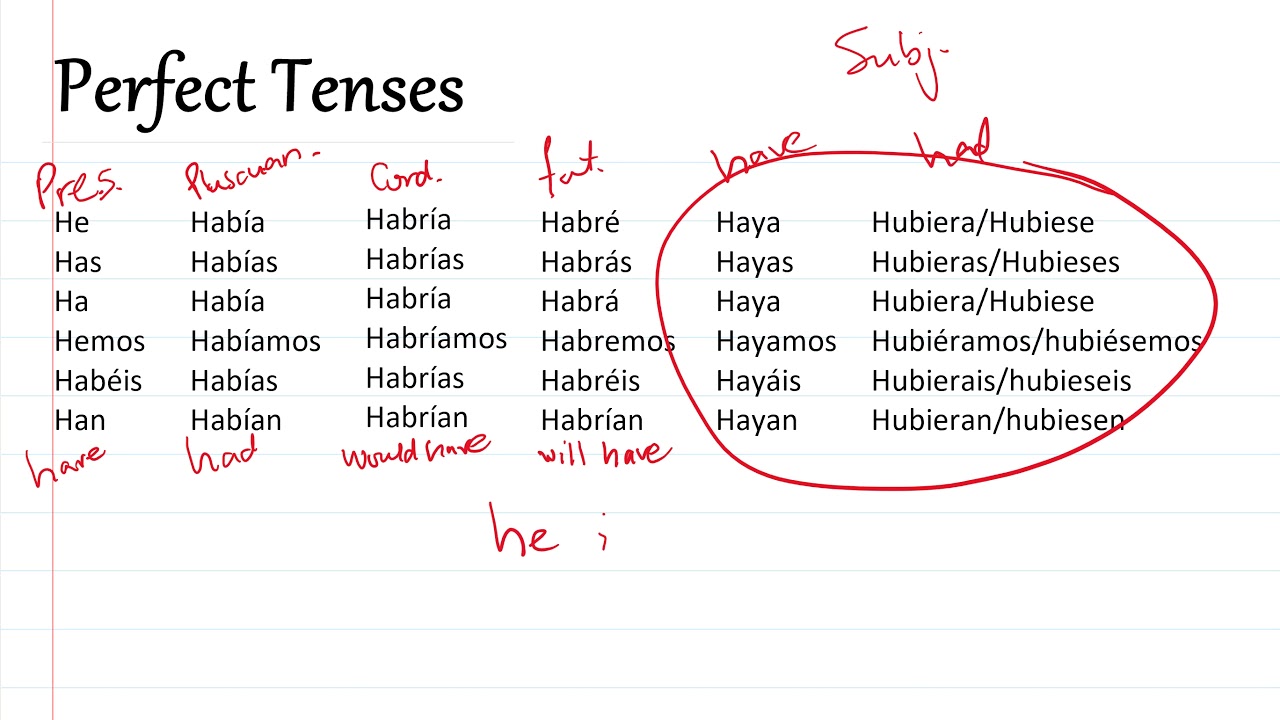 Perfect Tenses
Subj.
Pres. Pluscuam. Cond. fut. have had
He Había Habría Habré Haya Hubiera/Hubiese
Has Habías Habrías Habrás Hayas Hubieras/Hubieses
Ha Había Habría Habrá Haya Hubiera/Hubiese
Hemos Habíamos Habríamos Habremos Hayamos Hubiéramos/hubiésemos
Habéis Habías Habrías Habréis Hayáis Hubierais/hubieseis
Han Habían Habrían Habrían Hayan Hubieran/hubiesen
have had would have will have
he i